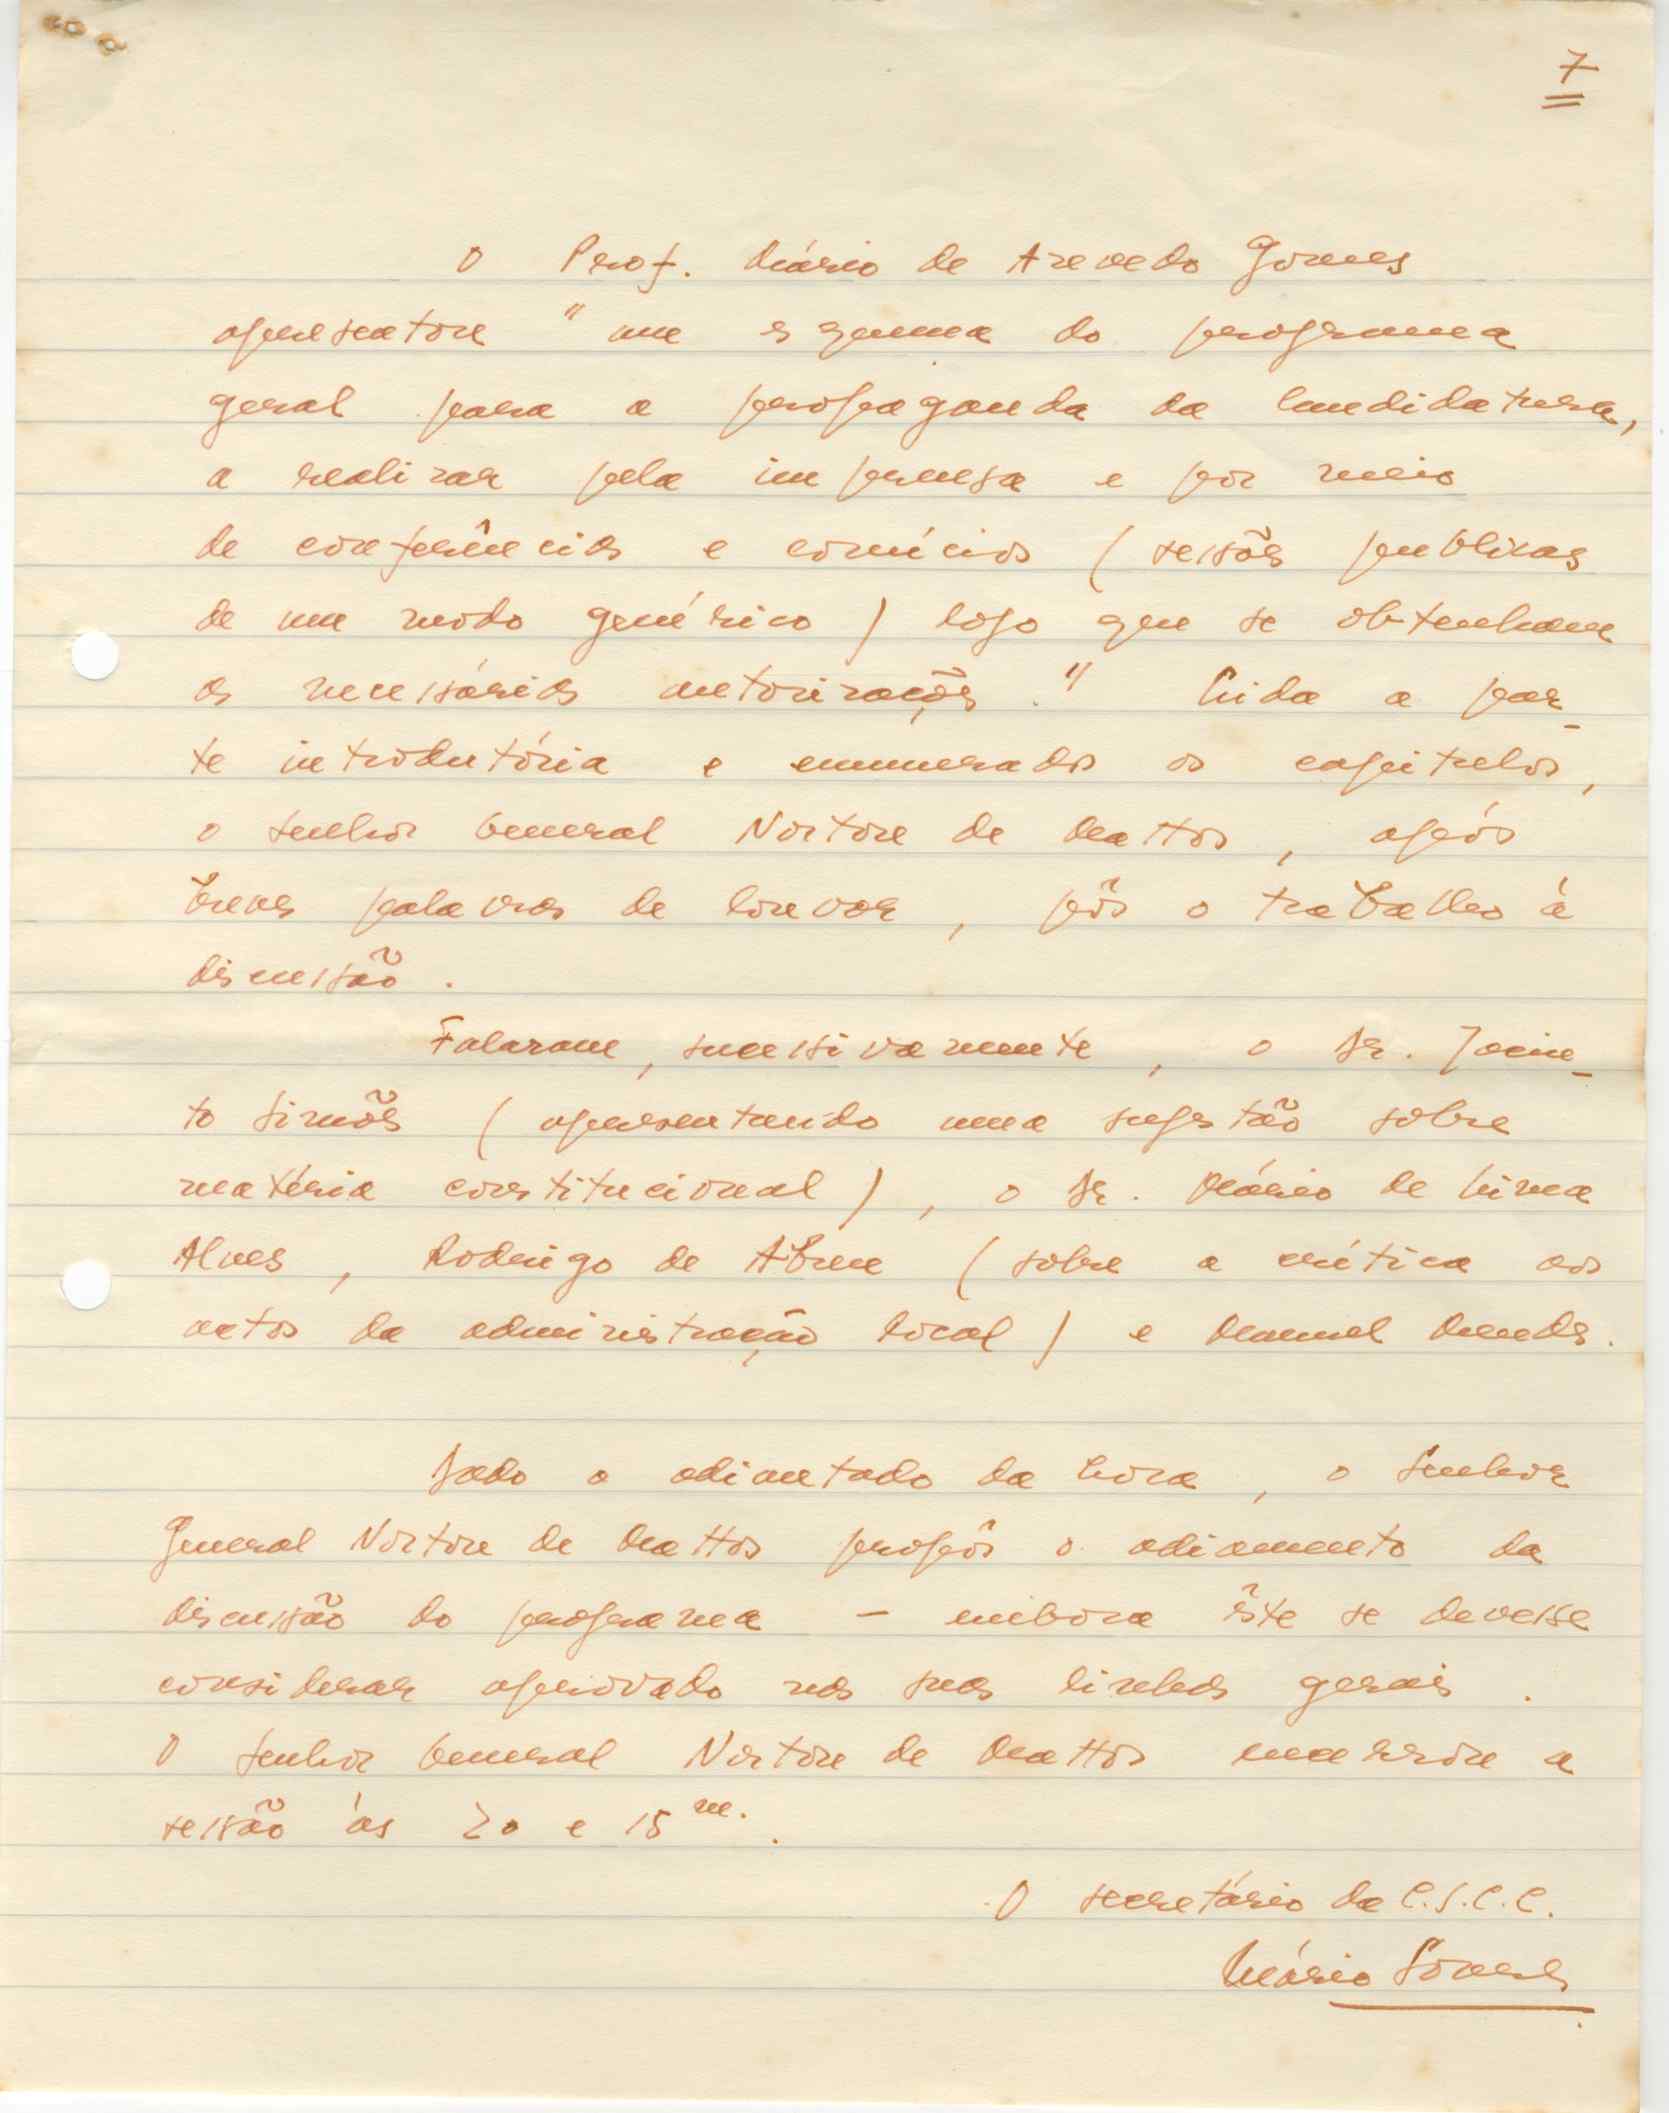 7
O Prof. Mário de Azevedo Gomes
apresentou "um esquema do programa
geral para a propaganda da Candidatura,
a realizar pela imprensa e por meio
de conferências e comícios (sessões publicas
de um modo genérico) logo que se obtenham
as necessárias autorizações." Lida a par-
te introdutória e enumerados os capitulos,
o senhor General Norton de Mattos, após
breves palavras de louvor, pôs o trabalho á
discussão.
Falaram, sucessivamente, o Dr. Jacin-
to Simões (apresentando uma sugestão sobre
matéria constitucional), o Dr. Mário de Lima
Alves, Rodrigo de Abreu (sobre a crítica aos
actos da administração local) e Manuel Mendes.
Dado o adiantado da hora, o Senhor
General Norton de Mattos propôs o adiamento da
discussão do programa - embora êste se devesse
considerar aprovado nas suas linhas gerais.
O senhor General Norton de Mattos encerrou a
sessão às 20 e 15 m.
O secretário da C.S.C.C.
Mário Soares